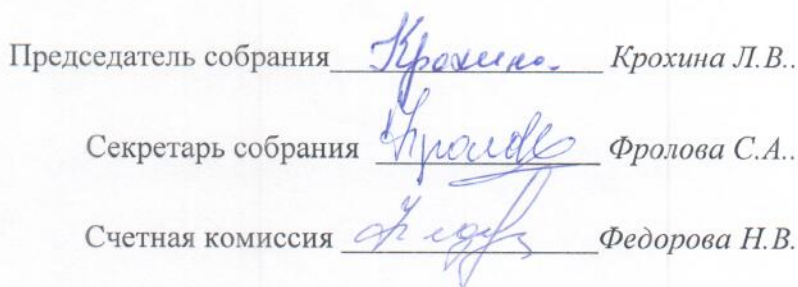 Председатель собрания Крохина Крохина Л.В..
Секретарь собрания Фролова Фролова С.А..
Счетная комиссия Федор Федорова Н.В.